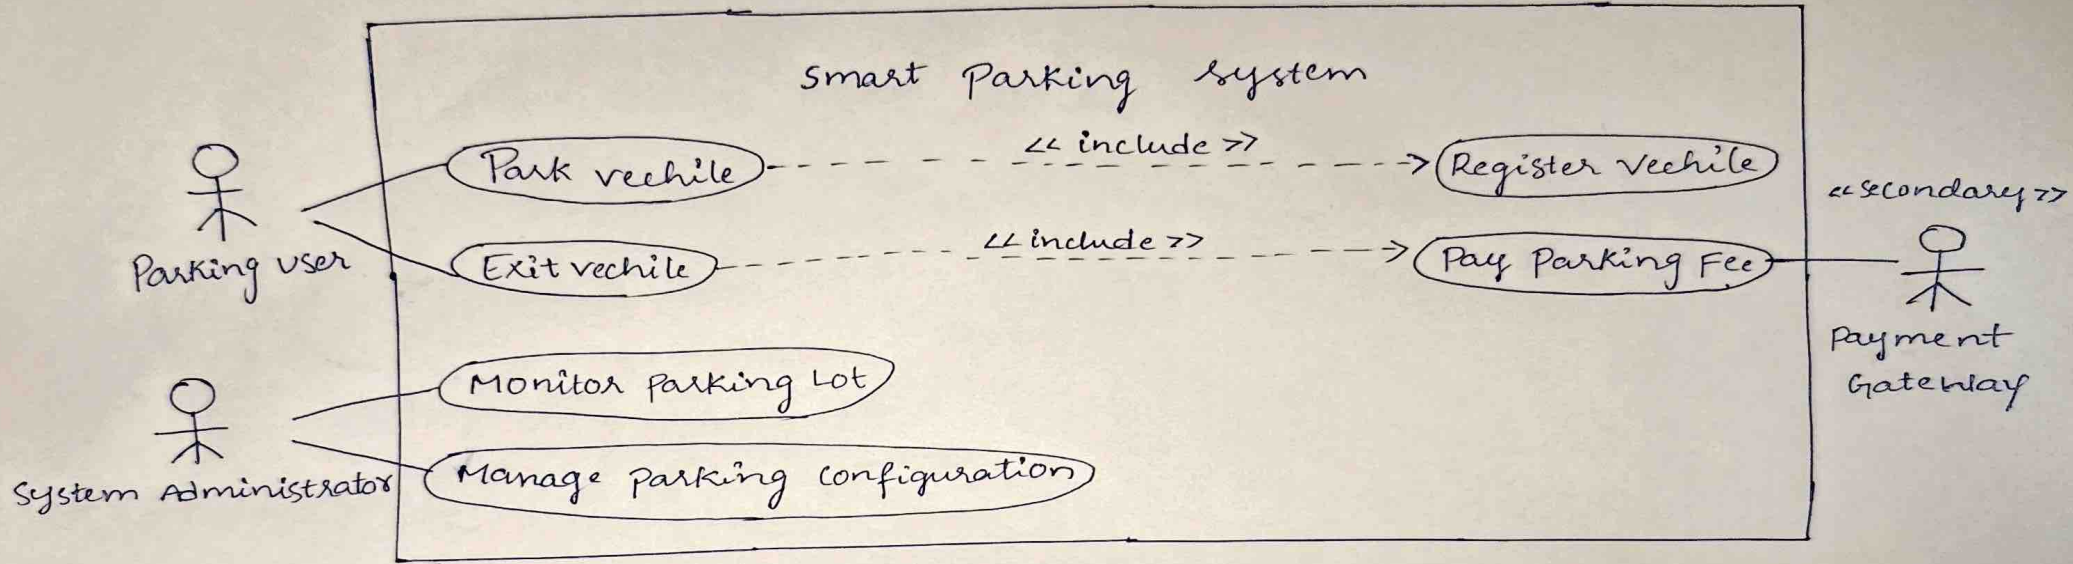 Smart Parking System
Park vechile
<< include >>
Register Vechile
<< secondary >>
Parking User
Exit vechile
<< include >>
Pay Parking Fee
Payment
Gateway
Monitor Parking Lot
System Administrator
Manage Parking Configuration